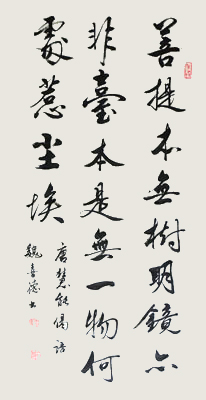 菩提本無樹明鏡亦
非臺本是無一物何
處惹尘埃
唐慧能偈語
魏喜